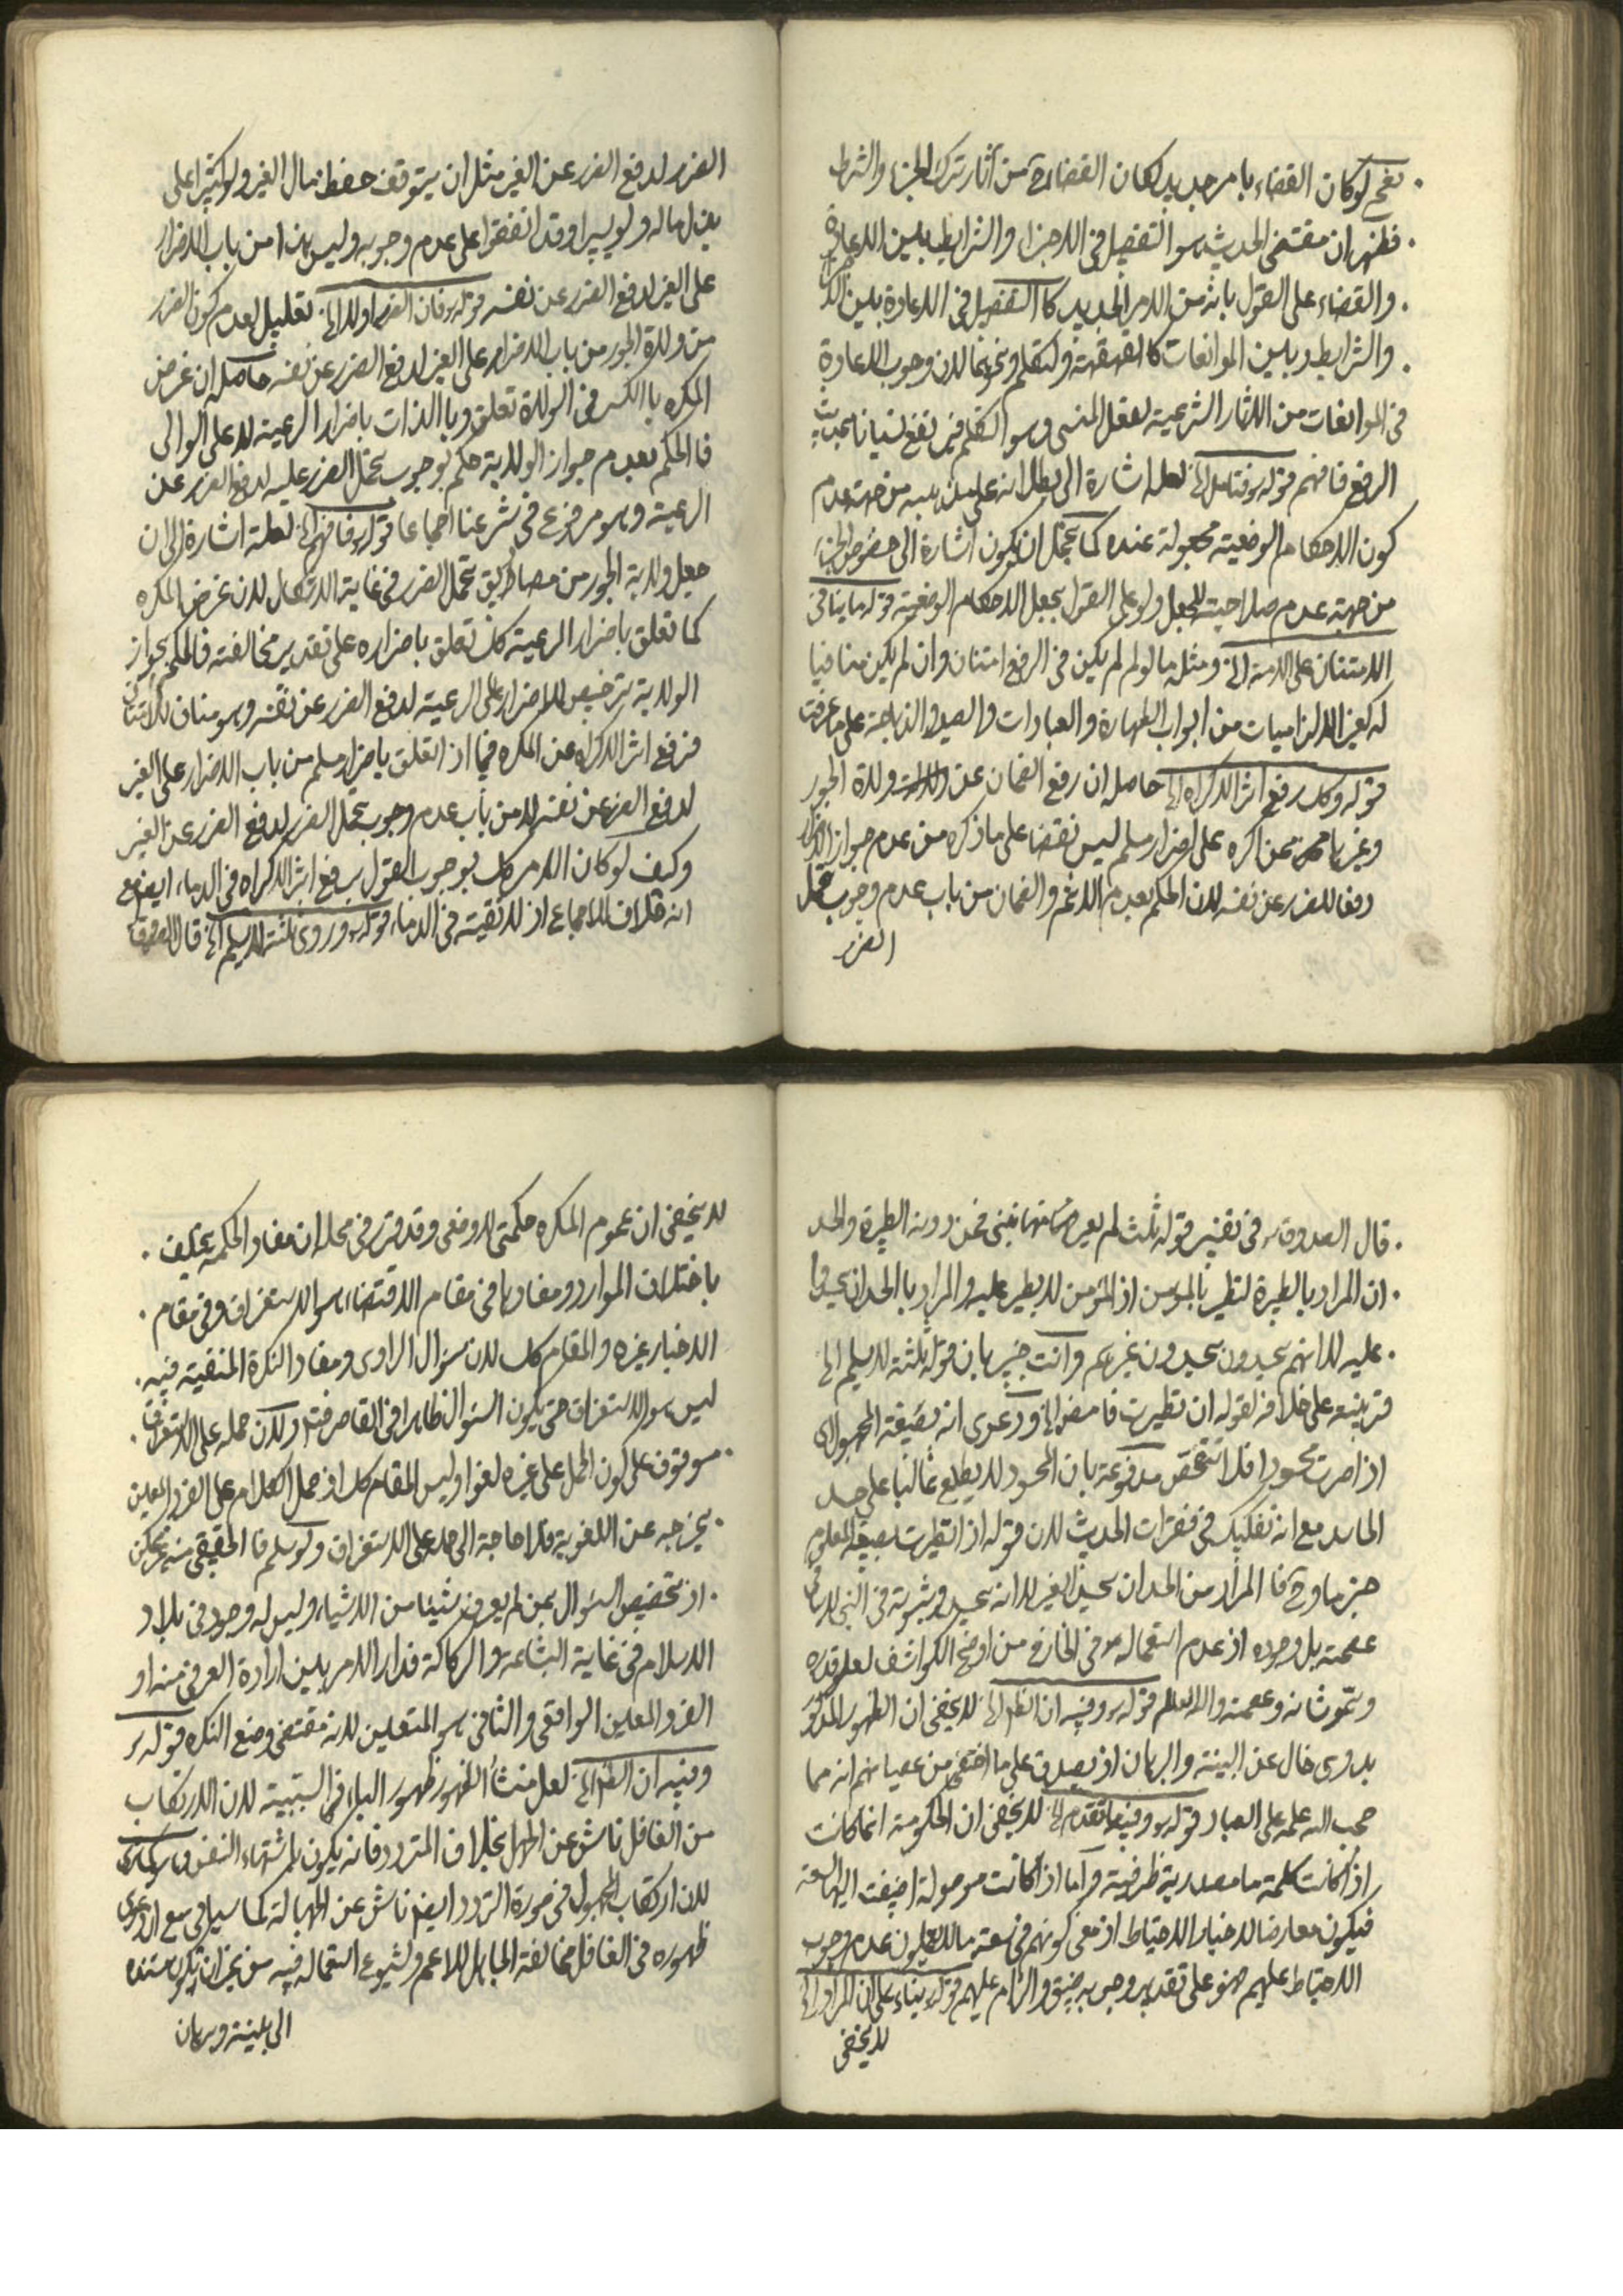 نعم لو كان القضاء بامر جديد لكان القضاء ح من آثار ترك الجزء والشرط
فظهر ان مقتضى الحديث هو التفصيل فى الاجزاء والشرايط بين الاعادة
والقضاء على القول بانه من الامر الجديد كا التفصيل فى الاعادة بين الاجزاء
والشرايط وبين الموانعات كا القهقهة والتكلم ونحوهما لان وجوب الاعادة
فى الموانعات من الاثار الشرعية لفعل المنسى وهو التكلم فيرتفع نسيانا بحديث
الرفع فافهم قوله ره فتامل الخ لعله اشارة الى بطلانه على مذهبه من جهت عدم
كون الاحكام الوضعية مجعولة عنده كما يحتمل ان يكون اشارة الى خصوص الجزء
من جهة عدم صلاحيته للجعل ولو على القول بجعل الاحكام الوضعية قوله ما ينافى
الامتنان على الامة الخ ومثله ما لو لم لم يكن فى الرفع امتنان وان لم يكن منافيا
له كغير الالزاميات من ابواب الطهارة والعبادات والصيد والذباحة على ما عرفت
قوله وكك رفع اثر الاكراه الخ حاصله ان رفع الضمان عن ولاة الجور
وغيرهم ممن اكره على اضرار مسلم ليس نقضا على ما ذكره من عدم جواز الاضرار
دفعا للضرر عن نفسه لان الحكم بعدم الاثم والضمان من باب عدم وجوب تحمل
الضرر
الضرر لدفع الضرر عن الغير مثل ان يتوقف حفظ مال الغير ولو كثيرا على
بذل ماله ولو يسيرا وقد اتفقوا على عدم وجوبه وليس هذا من باب الاضرار
على الغير لدفع الضرر عن نفسه قوله ره فان الضرر اولا الخ تعليل لعدم كون الضرر
من ولاة الجور من باب الاضرار على الغير لدفع الضرر عن نفسه حاصله ان غرض
المكره بالكسر فى الولاة تعلق وبا الذات باضرار الرعية لا على الوالى
فا الحكم بعدم جواز الولاية حكم بوجوب تحمل الضرر عليه لدفع الضرر عن
الرعية وهو مرفوع فى شرعنا اجماعا قوله ره فافهم الخ لعله اشارة الى ان
جعل ولاية الجور من مصاديق تحمل الضرر فى غاية الاشكال لان غرض المكره
كما تعلق باضرار الرعية كك تعلق باضراره على تقدير مخالفته فالحكم بجواز
الولاية ترخيص للاضرار على الرعية لدفع الضرر عن نفسه وهو مناف للامتنان
فرفع اثر الاكراه عن المكره فيما اذ اتعلق باضرار مسلم من باب الاضرار على الغير
لدفع الضرر عن نفسه لا من باب عدم وجوب تحمل الضرر لدفع الضرر عن الغير
وكيف لو كان الامر كك لوجب القول برفع اثر الاكراه فى الدماء ايضا مع
انه خلاف للاجماع اذ لا تقية فى الدماء قوله ره وروى ثلثة لا يسلم الخ قال الصدوق
قال الصدوق ره فى تفسير قوله ثلث لم يعر منها نبى فمن دونه الطيرة والحسد
ان المراد بالطيرة تطير بالمؤمن اذ المؤمن لا يطير عليه والمراد با الحسد ان يحسدوا
عليه لا انهم يحسدون يحسدون غيرهم وانت خبير بان قوله ثلثة لا يسلم الخ
قرينه على خلافه لقوله ان تطيرت فامض الخ ودعوى انه بصيغة المجهول اى
اذا صرت محسودا فلا تتفحص مدفوعة بان المحسود لا يطلع غالبا على حسد
الحاسد مع انه تفكيك فى فقرات الحديث لان قوله اذا تطيرت بصيغة المعلوم
جزما وح فا المراد من الحسد ان يحسد الغير لا انه يحسد وثبوته فى النبى لا ينافى
عصمته بل وجوده اذ عدم استعماله ره فى الخارج من اوضح الكواشف لعلو قدره
وسمو شانه وعصمته والله العالم قوله ره وفيه ان الظ الخ لا يخفى ان الظهور المذكور
بدوى خال عن البينة والبرهان اذ يصدق على ما اختفى من عصيانهم انه مما
حجب الله علمه على العباد قوله ره وفيه ما تقدم الخ لا يخفى ان الحكومة انما كانت
اذ كانت كلمة ما مصدرية ظرفية واما اذا كانت موصولة اضيفت اليها السعة
فيكون معارضا لاخبار الاحتياط اذ معنى كونهم فى سعة ما لا يعلمون عدم وجوب
الاحتياط عليهم فهو على تقدير وجوبه ضيق والزام عليهم قوله ره بناء على ان المراد الخ
لا يخفى
لا يخفى ان عموم المكره حكمتى لا وضعى وقد قرر فى محله ان مفاد الحكمة يختلف
باختلاف الموارد ومفادها فى مقام الاقتضاء هو الاستغراق وفى مقام
الاخبار غيره والمقام كك لان سؤال الراوى ومفاد النكرة المنفية فيه
ليس هو الاستغراق حتى يكون السؤال ظاهرا فى القاصر فقط ولكن حمله على الاستغراق
موقوف على كون الحمل على غيره لغوا وليس المقام كك اذ حمل الكلام على الفرد المعين
يخرجه عن اللغوية فلا حاجة الى حمله على الاستغراق ولو سلم فا الحقيقى منه غير ممكن
اذ تخصيص السؤال بمن لم يعرف شيئا من الاشياء وليس له وجود فى بلاد
الاسلام فى غاية البشاعة والركاكة فدار الامر بين ارادة العرفى منه او
الفرد المعين الواقعى والثانى هو المتعين لانه مقتضى وضع النكره قوله ره
وفيه ان الظ الخ لعل منشأ الظهور ظهور الباء فى السببية لان الارتكاب
من الغافل ناش عن الجهل بخلاف المتردد فانه يكون لاشتهاء النفس
لان ارتكاب المجهول فى صورة التردد ايضا ناش عن الجهالة كما سياتى مع ان دعوى
ظهوره فى الغافل مخالفة الجاهل للاعم وشيوع استعماله فيه من غير ان يكون مستنده
الى بينة وبرهان